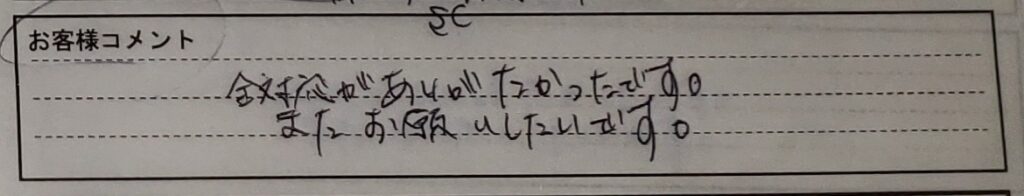 SC
お客様コメント
全対応がありがたかったです。
またお願いしたいです。